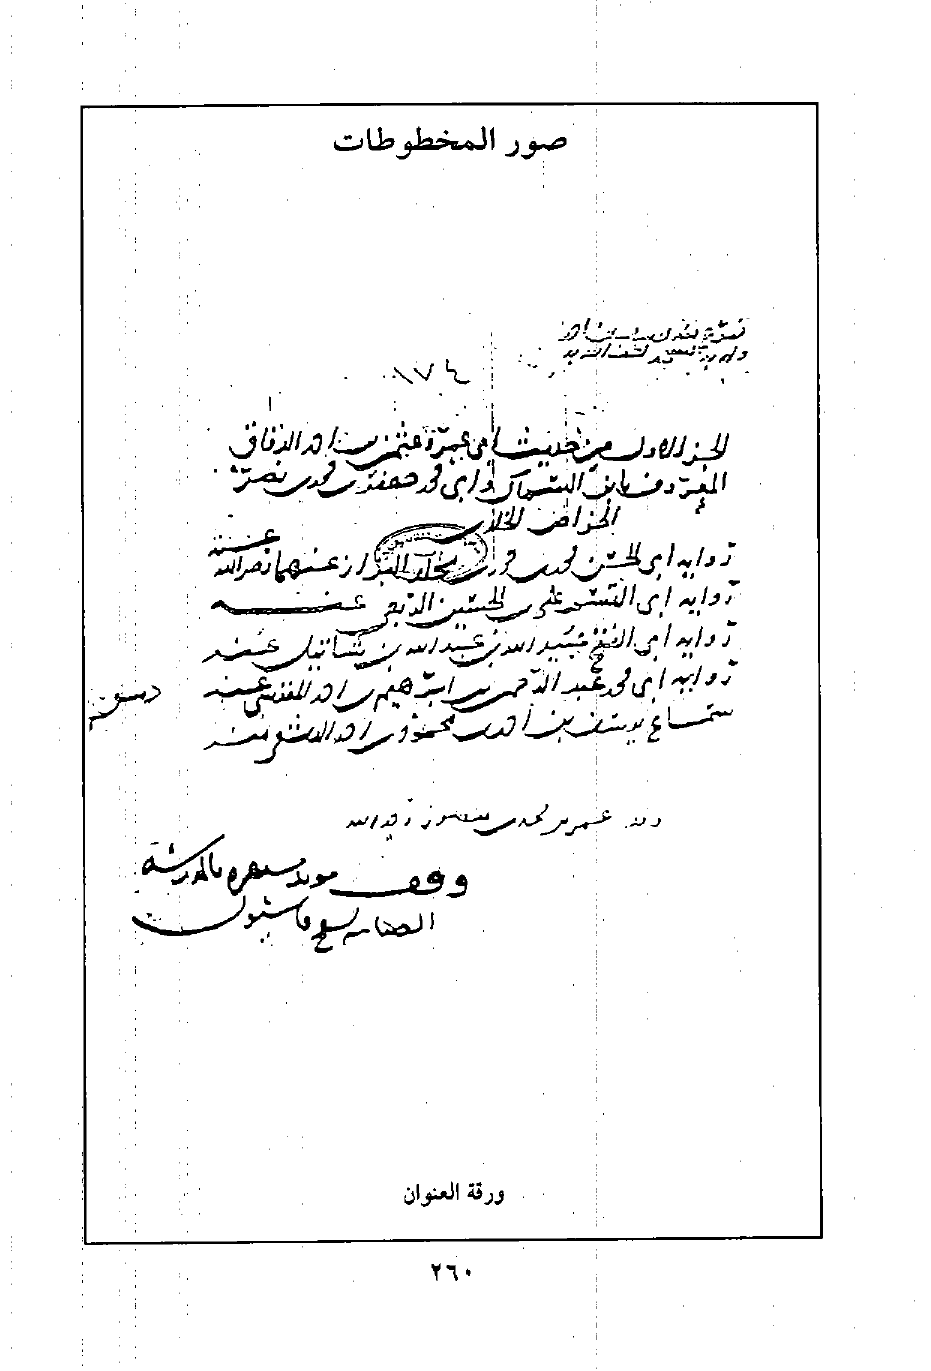 صور المخطوطات
١٧٤
الجزء الاول من حديث ابي عمرو عثمن بن احمد الدقاق
المعروف بابن السماك وابي محمد جعفر بن محمد بن نصر
الخواص الخلدي
رواية ابي الحسن محمد بن محمد بن مخلد البزاز عنهما
رواية ابي القسم علي بن الحسين الربعي عنه
رواية ابي الفتح عبيد الله بن عبد الله بن شاتيل عنه
رواية ابي محمد عبد الرحمن بن ابرهيم بن احمد المقدسي عنه
سماع يوسف بن احمد بن محمود بن احمد الدمشقي منه
عمر بن محمد بن منصور
وقف مؤبد بالمدرسة
الضيائية بسفح قاسيون
ورقة العنوان
٢٦٠